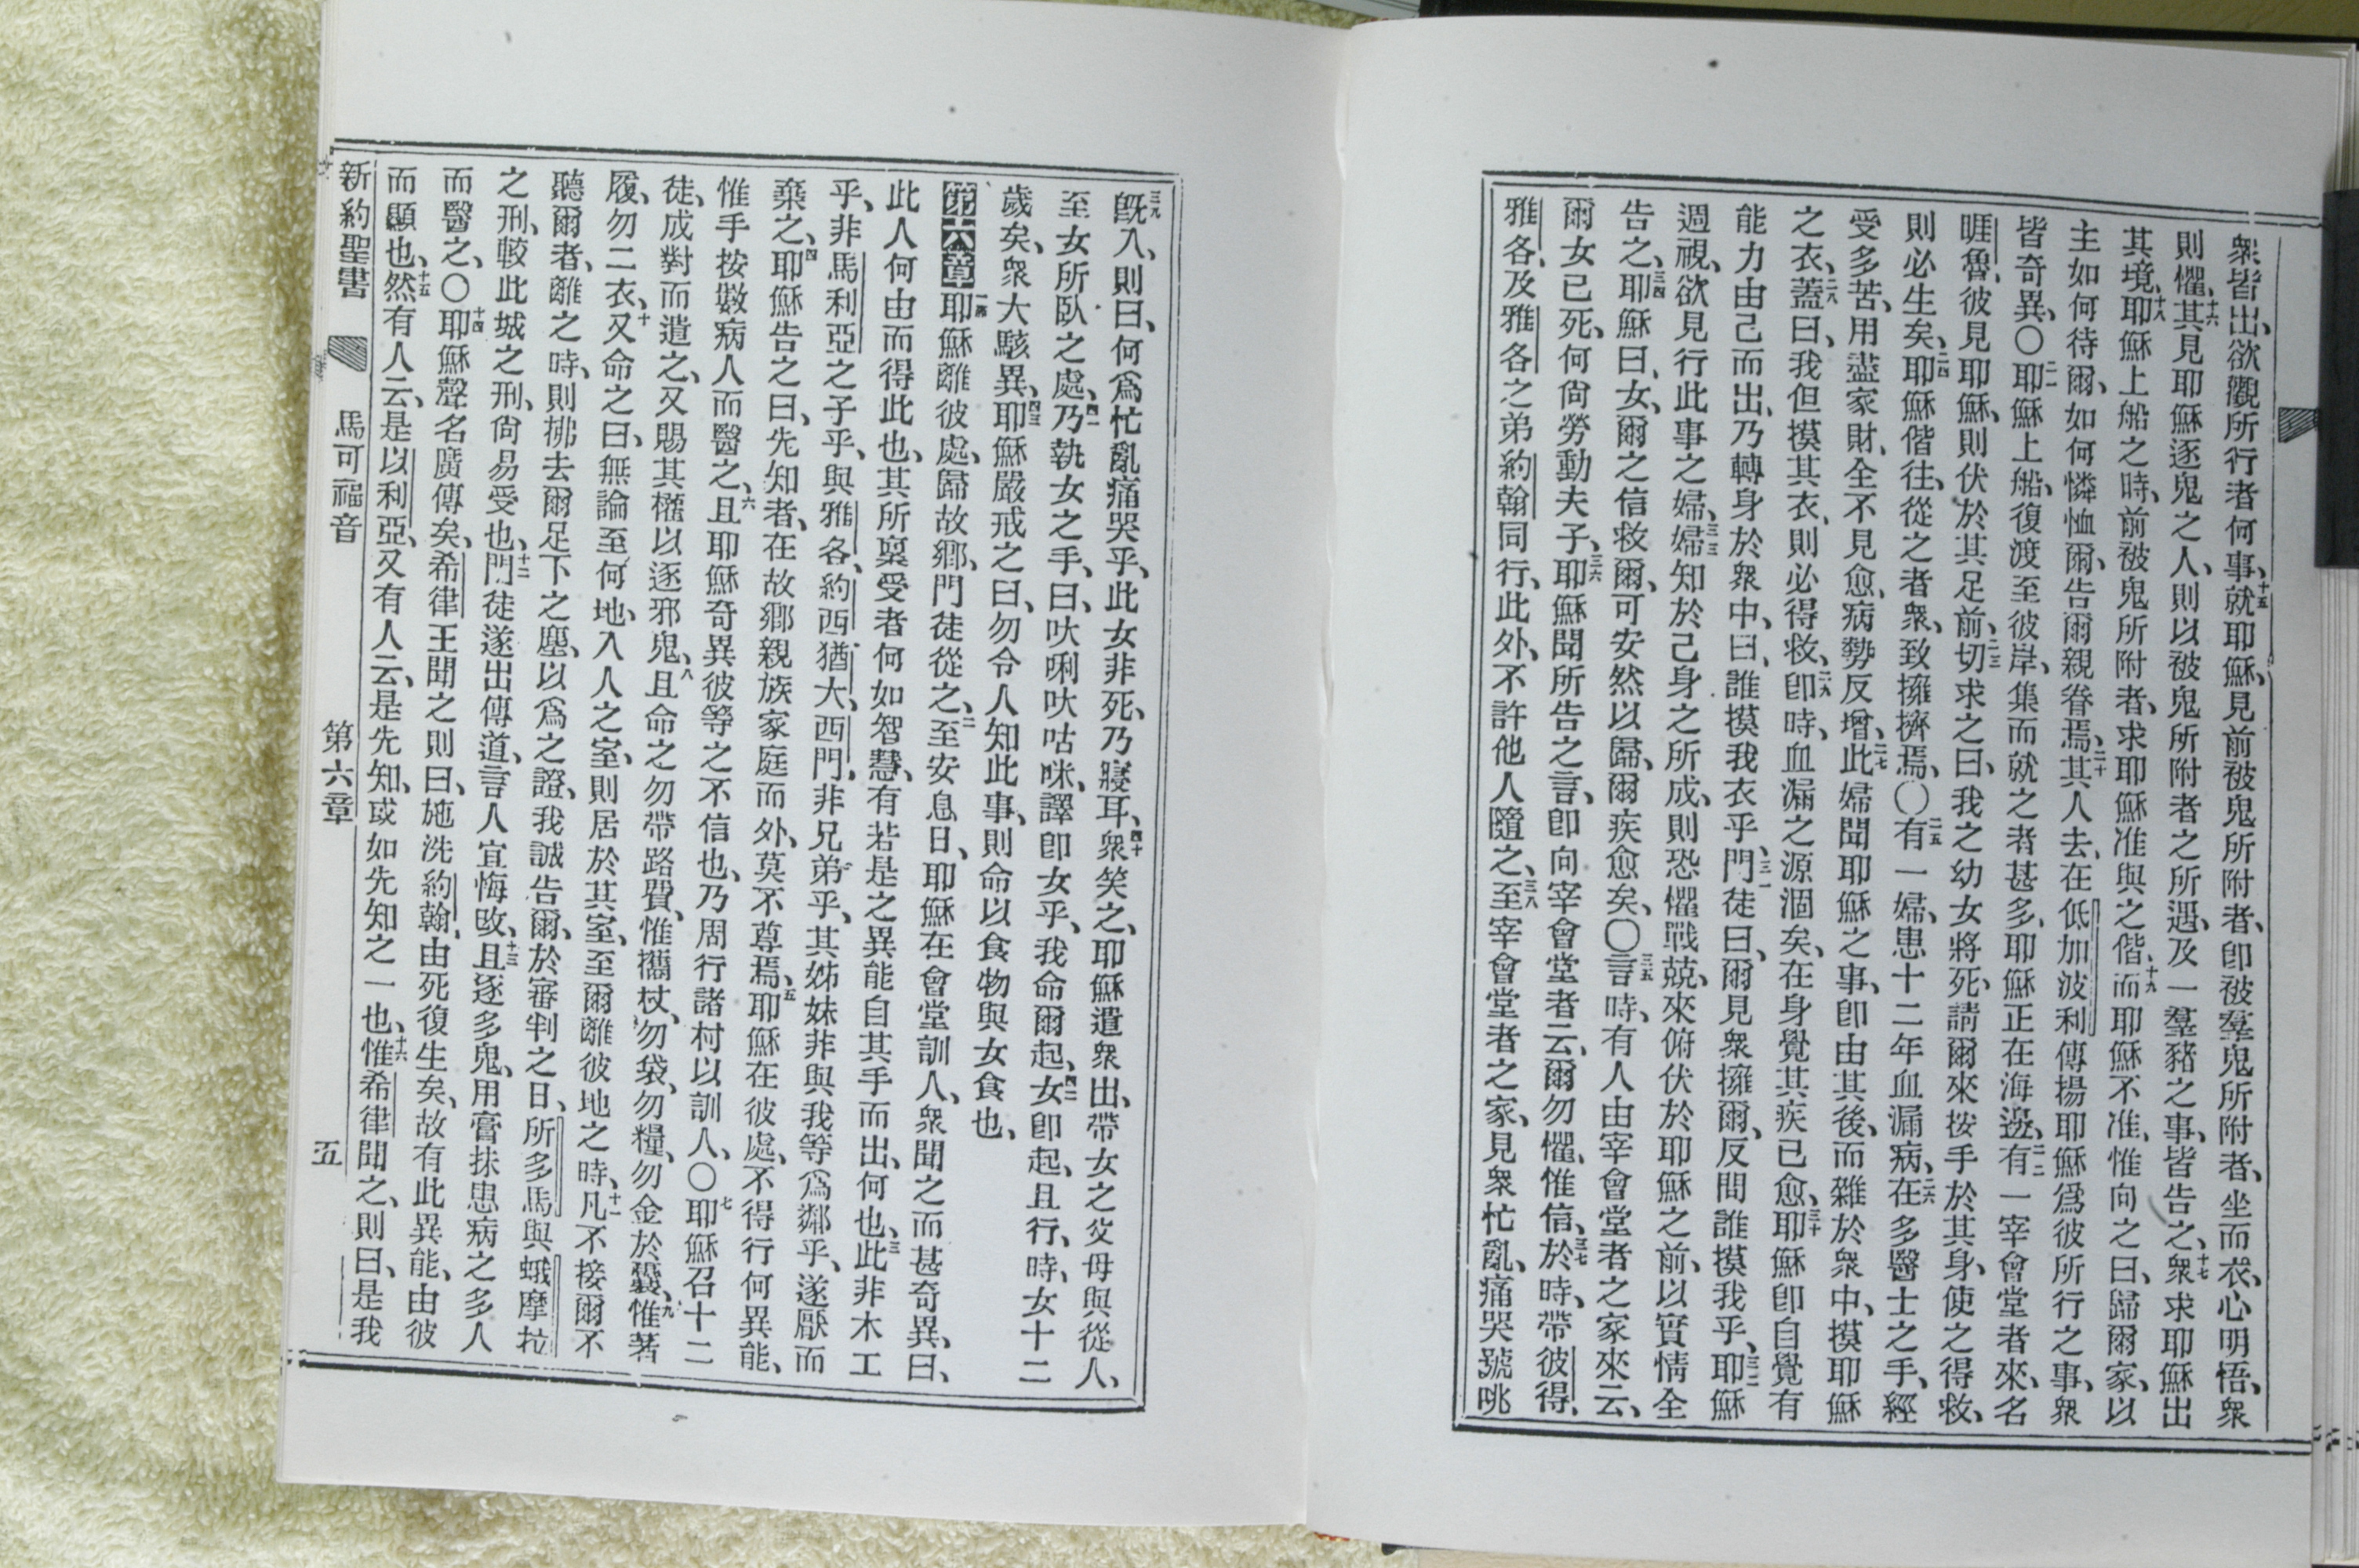 衆皆出、欲觀所行者何事、十五就耶穌、見前被鬼所附者、卽被羣鬼所附者、坐而衣、心明悟、衆
則懼、十六其見耶穌逐鬼之人、則以被鬼所附者之所遇、及一羣豬之事、皆告之、十七衆求耶穌出
其境、十八耶穌上船之時、前被鬼所附者、求耶穌准與之偕、十九而耶穌不准、惟向之曰、歸爾家、以
主如何待爾、如何憐恤爾、告爾親眷焉、二十其人去、在低加波利傳揚耶穌爲彼所行之事、衆
皆奇異、〇二一耶穌上船、復渡至彼岸、集而就之者甚多、耶穌正在海邊、二二有一宰會堂者來、名
睚魯、彼見耶穌、則伏於其足前、二三切求之曰、我之幼女將死、請爾來按手於其身、使之得救、
則必生矣、二四耶穌偕往、從之者衆、致擁擠焉、〇二五有一婦、患十二年血漏病、二六在多醫士之手、經
受多苦、用盡家財、全不見愈、病勢反增、二七此婦聞耶穌之事、卽由其後、而雜於衆中、摸耶穌
之衣、二八蓋曰、我但摸其衣、則必得救、二九卽時、血漏之源涸矣、在身覺其疾已愈、三十耶穌卽自覺有
能力由己而出、乃轉身於衆中、曰、誰摸我衣乎、三一門徒曰、爾見衆擁爾、反問誰摸我乎、三二耶穌
週視、欲見行此事之婦、三三婦知於己身之所成、則恐懼戰兢、來俯伏於耶穌之前、以實情全
告之、三四耶穌曰、女、爾之信救爾、可安然以歸、爾疾愈矣、〇三五言時、有人由宰會堂者之家來云、
爾女已死、何尙勞動夫子、三六耶穌聞所告之言、卽向宰會堂者云、爾勿懼、惟信、三七於時、帶彼得、
雅各、及雅各之弟約翰同行、此外、不許他人隨之、三八至宰會堂者之家、見衆忙亂、痛哭號咷
三九旣入、則曰、何爲忙亂痛哭乎、此女非死、乃寢耳、四十衆笑之、耶穌遣衆出、帶女之父母與從人、
至女所臥之處、四一乃執女之手、曰、吠唎吠咕咪、譯卽女乎、我命爾起、四二女卽起、且行、時、女十二
歲矣、衆大駭異、四三耶穌嚴戒之曰、勿令人知此事、則命以食物與女食也、
第六章 一節耶穌離彼處、歸故鄉、門徒從之、二至安息日、耶穌在會堂訓人、衆聞之而甚奇異、曰、
此人何由而得此也、其所稟受者何如智慧、有若是之異能自其手而出、何也、三此非木工
乎、非馬利亞之子乎、與雅各、約西猶大、西門、非兄弟乎、其姊妹非與我等爲鄰乎、遂厭而
棄之、四耶穌告之曰、先知者、在故鄉親族家庭而外、莫不尊焉、五耶穌在彼處、不得行何異能、
惟手按數病人而醫之、六且耶穌奇異彼等之不信也、乃周行諸村以訓人、〇七耶穌召十二
徒、成對而遣之、又賜其權以逐邪鬼、八且命之勿帶路費、惟攜杖、勿袋、勿糧、勿金於囊、九惟著
履、勿二衣、十又命之曰、無論至何地、入人之室、則居於其室、至爾離彼地之時、十一凡不接爾不
聽爾者、離之時、則拂去爾足下之塵、以爲之證、我誠告爾、於審判之日、所多馬與蛾摩拉
之刑、較此城之刑、尙易受也、十二門徒遂出傳道、言人宜悔改、十三且逐多鬼、用膏抹患病之多人
而醫之、〇十四耶穌聲名廣傳矣、希律王聞之則曰、施洗約翰、由死復生矣、故有此異能、由彼
而顯也、十五然有人云、是以利亞、又有人云、是先知、或如先知之一也、十六惟希律聞之、則曰、是我
新約聖書 馬可福音 第六章 五